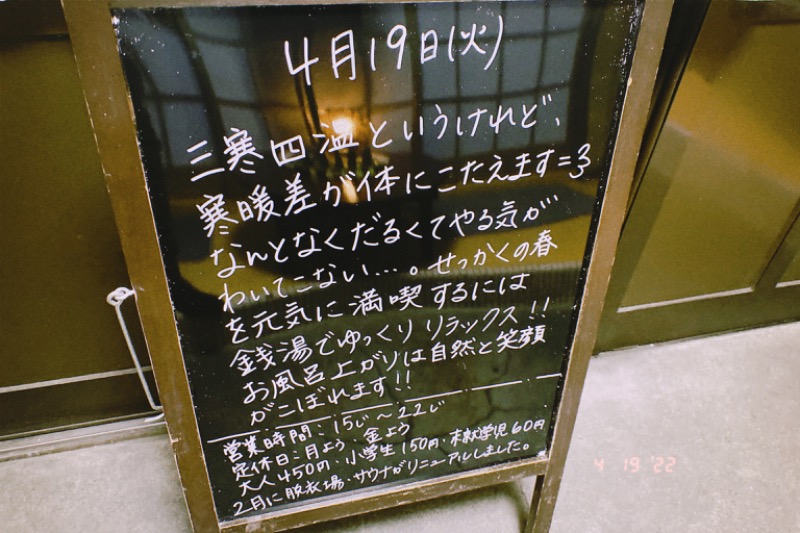 4月19日(火)
三寒四温というけれど、
寒暖差が体にこたえます=3
なんとなくだるくてやる気が
わいてこない…。せっかくの春
を元気に満喫するには
銭湯でゆっくりリラックス!!
お風呂上がりは自然と笑顔
がこぼれます!!
営業時間:15じ〜22じ
定休日:月よう 金よう
大人450円・小学生150円・未就学児60円
2月に脱衣場・サウナがリニューアルしました。
4 19 '22